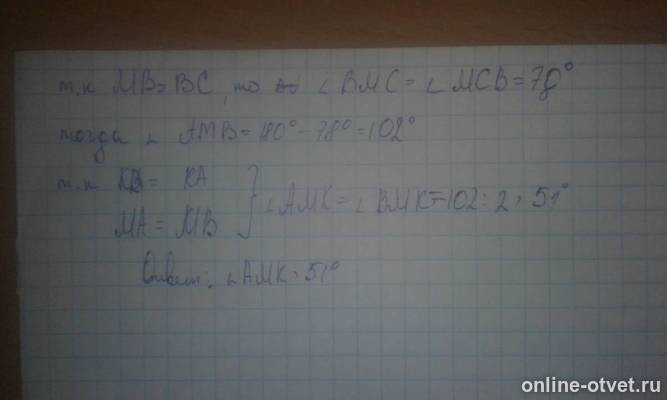 т.к MB=BC, то ∠BMC=∠MCB=78°
тогда ∠AMB=180°-78°=102°
т.к KB= KA
MA=MB } ∠AMK=∠BMK=102:2=51°
Ответ: ∠AMK=51°
online-otvet.ru